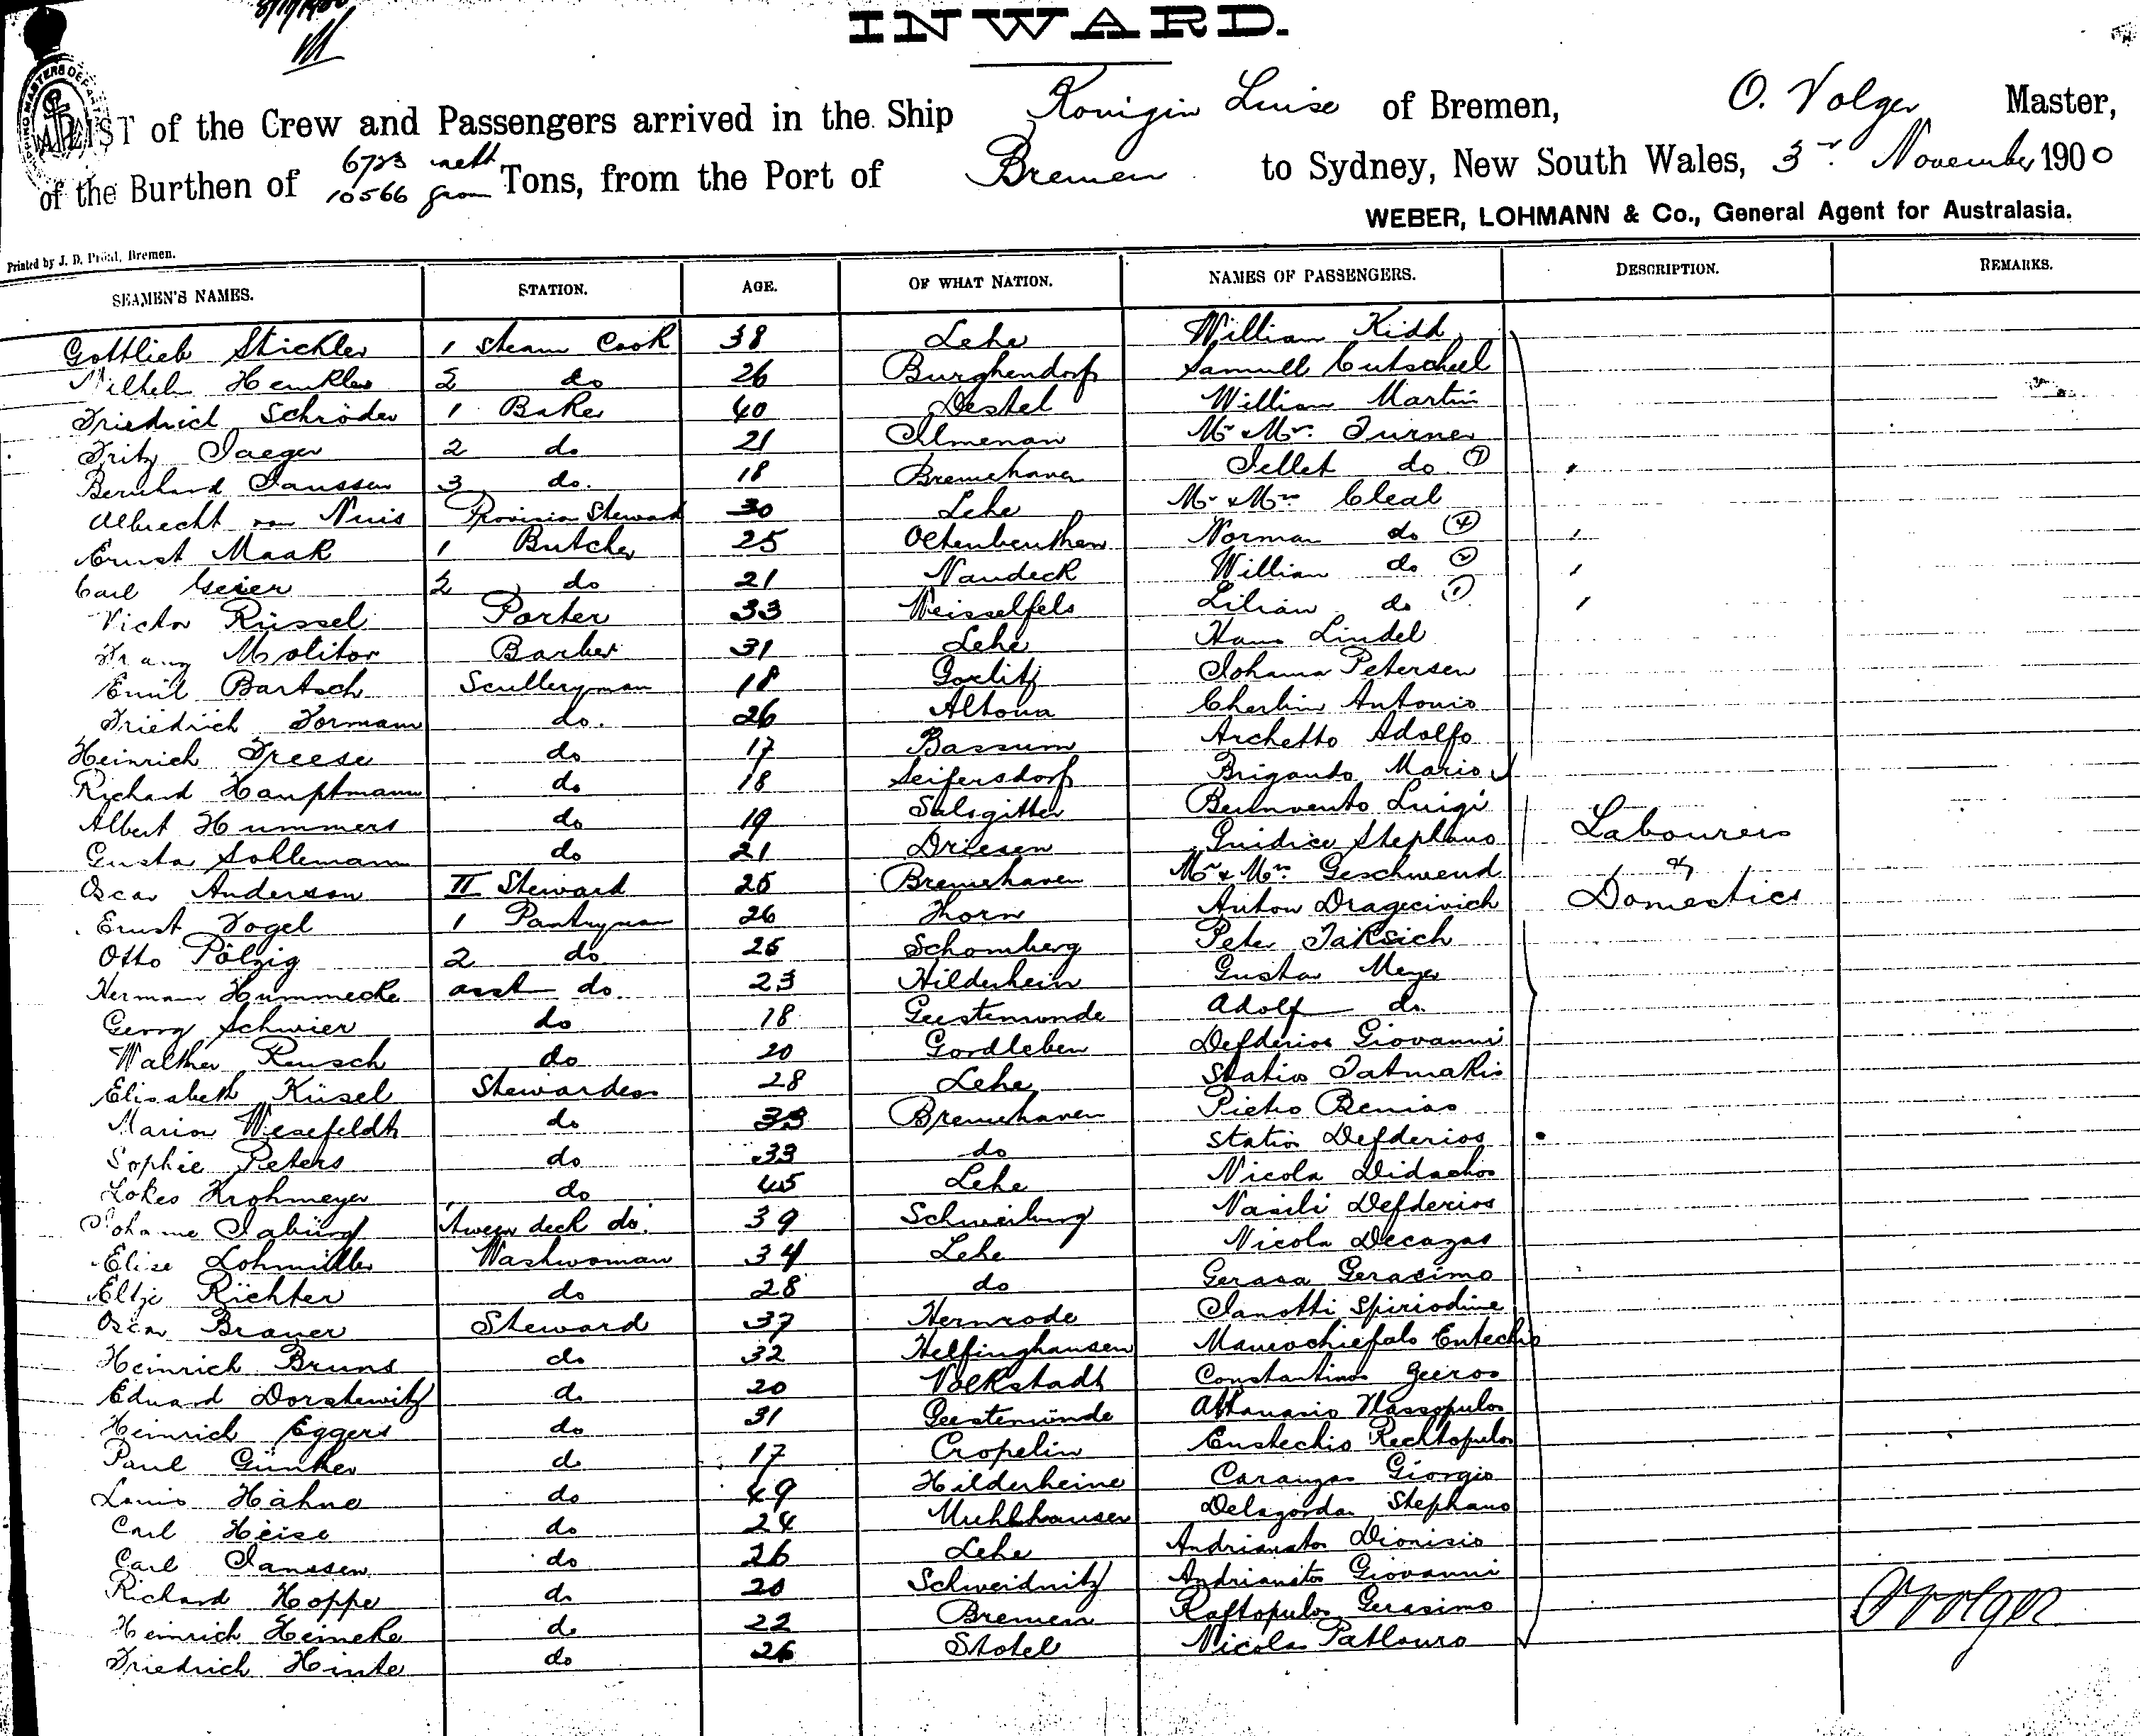 INWARD.
LIST of the Crew and Passengers arrived in the Ship Konigin Luise of Bremen, O. Volger Master,
of the Burthen of 6723 nett 10566 gross Tons, from the Port of Bremen to Sydney, New South Wales, 3r. November 1900
WEBER, LOHMANN & Co., General Agent for Australasia.
Printed by J. D. Bremen.
SEAMEN'S NAMES. STATION. AGE. OF WHAT NATION. NAMES OF PASSENGERS. DESCRIPTION. REMARKS.
Gottlieb Stickler 1 Steam Cook 38 Lehe William Kidd
Wilhelm Henkler 2 do 26 Burghendorf Samuell Cutscheel
Friedrich Schröder 1 Baker 40 Destel William Martin
Fritz Jaeger 2 do 21 Ilmenau Mr & Mrs. Turner
Bernhard Janssen 3 do. 18 Bremehaven Jellet do 7
Albrecht van Nuis Provision Steward 30 Lehe Mr & Mrs Cleal
Ernst Maak 1 Butcher 25 Norman do 4
Carl Geier 2 do 21 Naudeck William do 2
Victor Rüssel Porter 33 Weisselfels Lilian do 1
Franz Molitor Barber 31 Lehe Hans Lindel
Emil Bartsch Sculleryman 18 Gorlitz Johanna Petersen
Friedrich Formann do. 26 Altona Cherbin Antonio
Heinrich Freese do 17 Bassum Archetto Adolfo
Richard Hauptmann do 18 Seifersdorf Brigando Mario
Albert Hummers do 19 Salsgitter Bennvento Luigi
Gustav Sohlemann do 21 Driesen Guidice Stephano Labourers
Oscar Anderson II Steward 25 Bremehaven Mr & Mrs. Geschwend &
Ernst Vogel 1 Pantryman 26 Thorn Anton Dragecivich Domestics
Otto Pölzig 2 do 25 Schomberg Peter Jaksich
Hermann Hummecke asst do. 23 Hildesheim Gustav Meyer
Georg Schwier do 18 Geestemunde Adolf do.
Walther Reusch do 20 Gordleben Defderios Giovanni
Elisabeth Küsel Stewardess 28 Lehe Statios Jatmakis
Maria Wesefeldt do 33 Bremehaven Pietro Benias
Sophie Peters do 33 do Statio Defderios
Lokes Krohmeyer do 45 Lehe Nicola Didachos
Johanne Jabürg tween deck do. 39 Schweiburg Vasili Defderios
Elise Lohmüller Washwoman 34 Lehe Nicola Decazas
Eltje Richter do 28 do Gerasa Gerasimo
Oscar Brauer Steward 37 Hernrode Janotti Spiriodine
Heinrich Bruns do 32 Helfinghausen Maurochiefalo Entechio
Eduard Dorstewitz do 20 Volkstadt Constantinos Geeros
Heinrich Eggers do 31 Geestemünde Athanasio Nassopulos
Paul Günther do 17 Cropelin Eustechio Rechtopulos
Louis Hähne do 49 Hilderheime Caranzas Giorgio
Carl Heise do 24 Muhlhausen Delagorda Stephano
Carl Janssen do 26 Lehe Andrianatos Dionisio
Richard Hoppe do 20 Schweidnitz Andrianatos Giovanni
Heinrich Heineke do 22 Bremen Raftopulos Gerasimo
Friedrich Hinte do 26 Stotel Nicolas Patlouro
O Volger